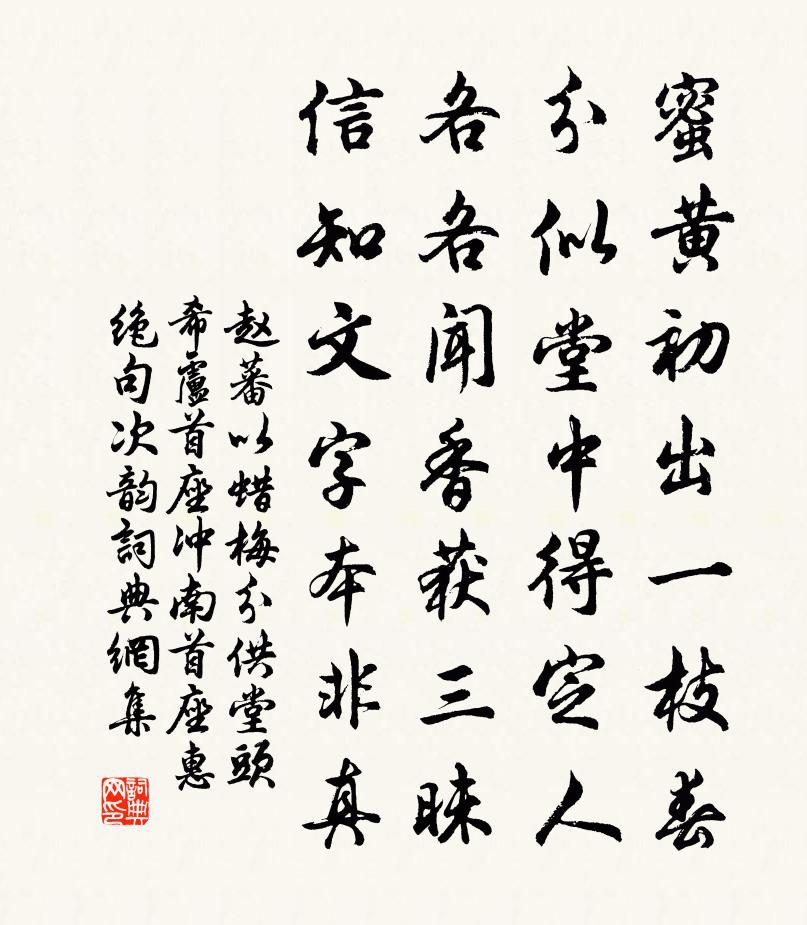 蜜黄初出一枝春
分似堂中得定人
各各闻香获三昧
信知文字本非真
赵蕃以蜡梅分供堂頭
希廬首座冲南首座惠
绝句次韵詞典網集
詞典网印